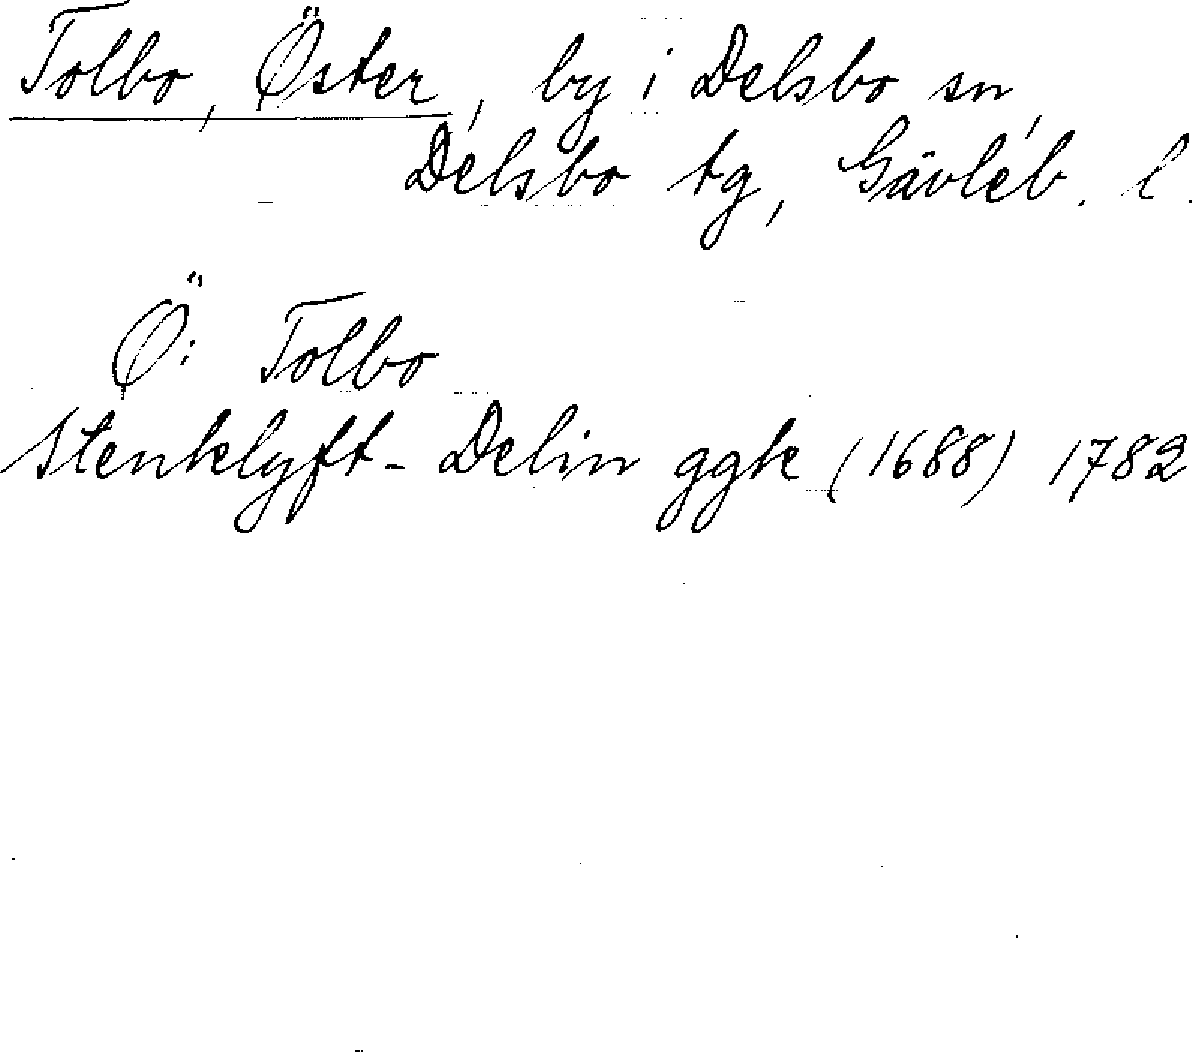 Tolbo, Öster, by i Delsbo sn,
Delsbo tg, Gävleb. l.
Ö: Tolbo
Stenklyft-Delin ggk (1688) 1782